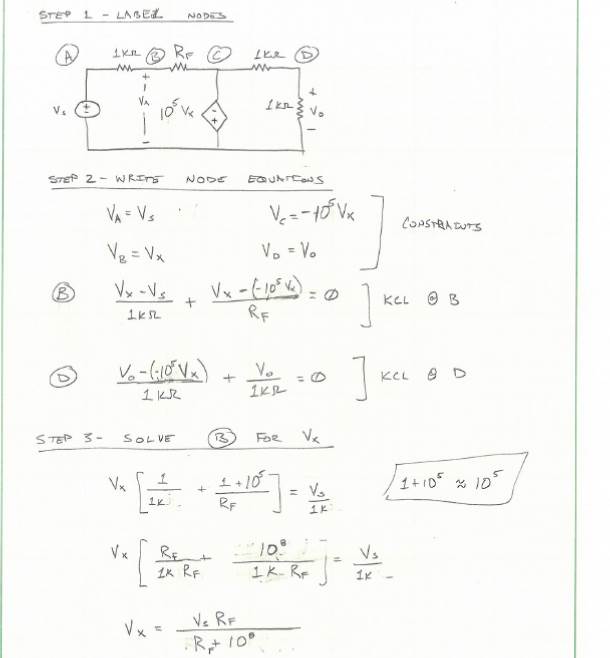 STEP 1 - LABEL NODES
A 1KΩ B RF C 1KΩ D
+ +
Vs ± Vx 10⁵ Vx - + 1KΩ Vo
- -
STEP 2 - WRITE NODE EQUATIONS
VA = Vs Vc = -10⁵ Vx
CONSTRAINTS
VB = Vx VD = Vo
B (Vx - Vs)/1KΩ + (Vx - (-10⁵ Vx))/RF = 0 ] KCL @ B
D (Vo - (-10⁵ Vx))/1KΩ + Vo/1KΩ = 0 ] KCL @ D
STEP 3 - SOLVE B FOR Vx
Vx [ 1/1K + (1 + 10⁵)/RF ] = Vs/1K 1 + 10⁵ ≈ 10⁵
Vx [ RF/(1K RF) + 10⁸/(1K RF) ] = Vs/1K
Vx = Vs RF/(RF + 10⁸)